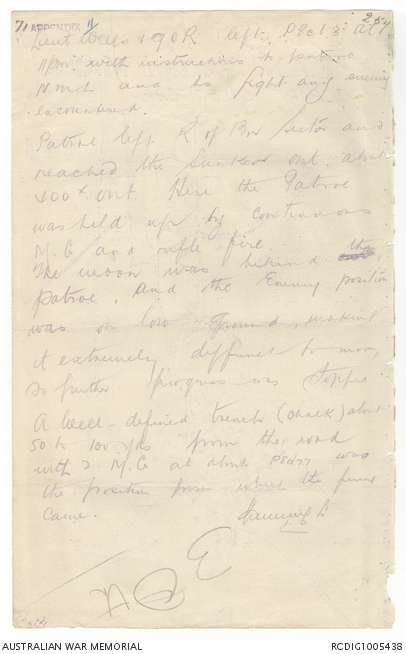 APPENDIX 11
254
Lieut Wells & 9 O R left P8c13 at
with instructions to patrol
N and to fight any enemy
encountered.
Patrol left R of Bn Sector and
reached the Sunken out about
400x out. Here the Patrol
was held up by continuous
M.G and rifle fire.
The moon was behind the
patrol, and the Enemy position
was on low Ground, making
it extremely difficult to move,
so further progress was stopped
A well-defined trench (chalk) about
50 to 100 yds from the road
with 2 M.G at about was
the position from where the fire
came.
AUSTRALIAN WAR MEMORIAL
RCDIG1005438